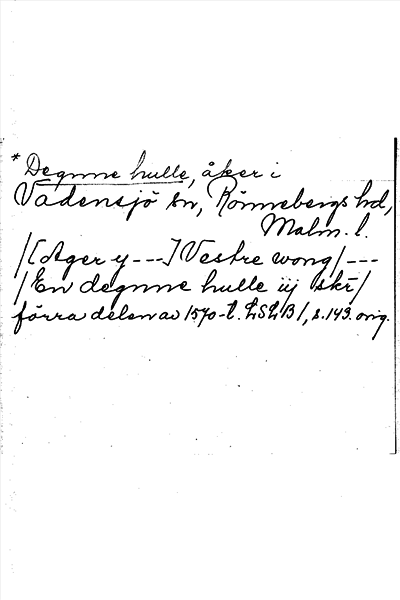 * Degnne hulle, åker i
Vadensjö sn, Rönnebergs hd,
Malm. l.
/[Ager y ---] Vestre wong/---
/En degnne hulle iij skr/
förra delen av 1570-t. LSLB/, s. 143. orig.